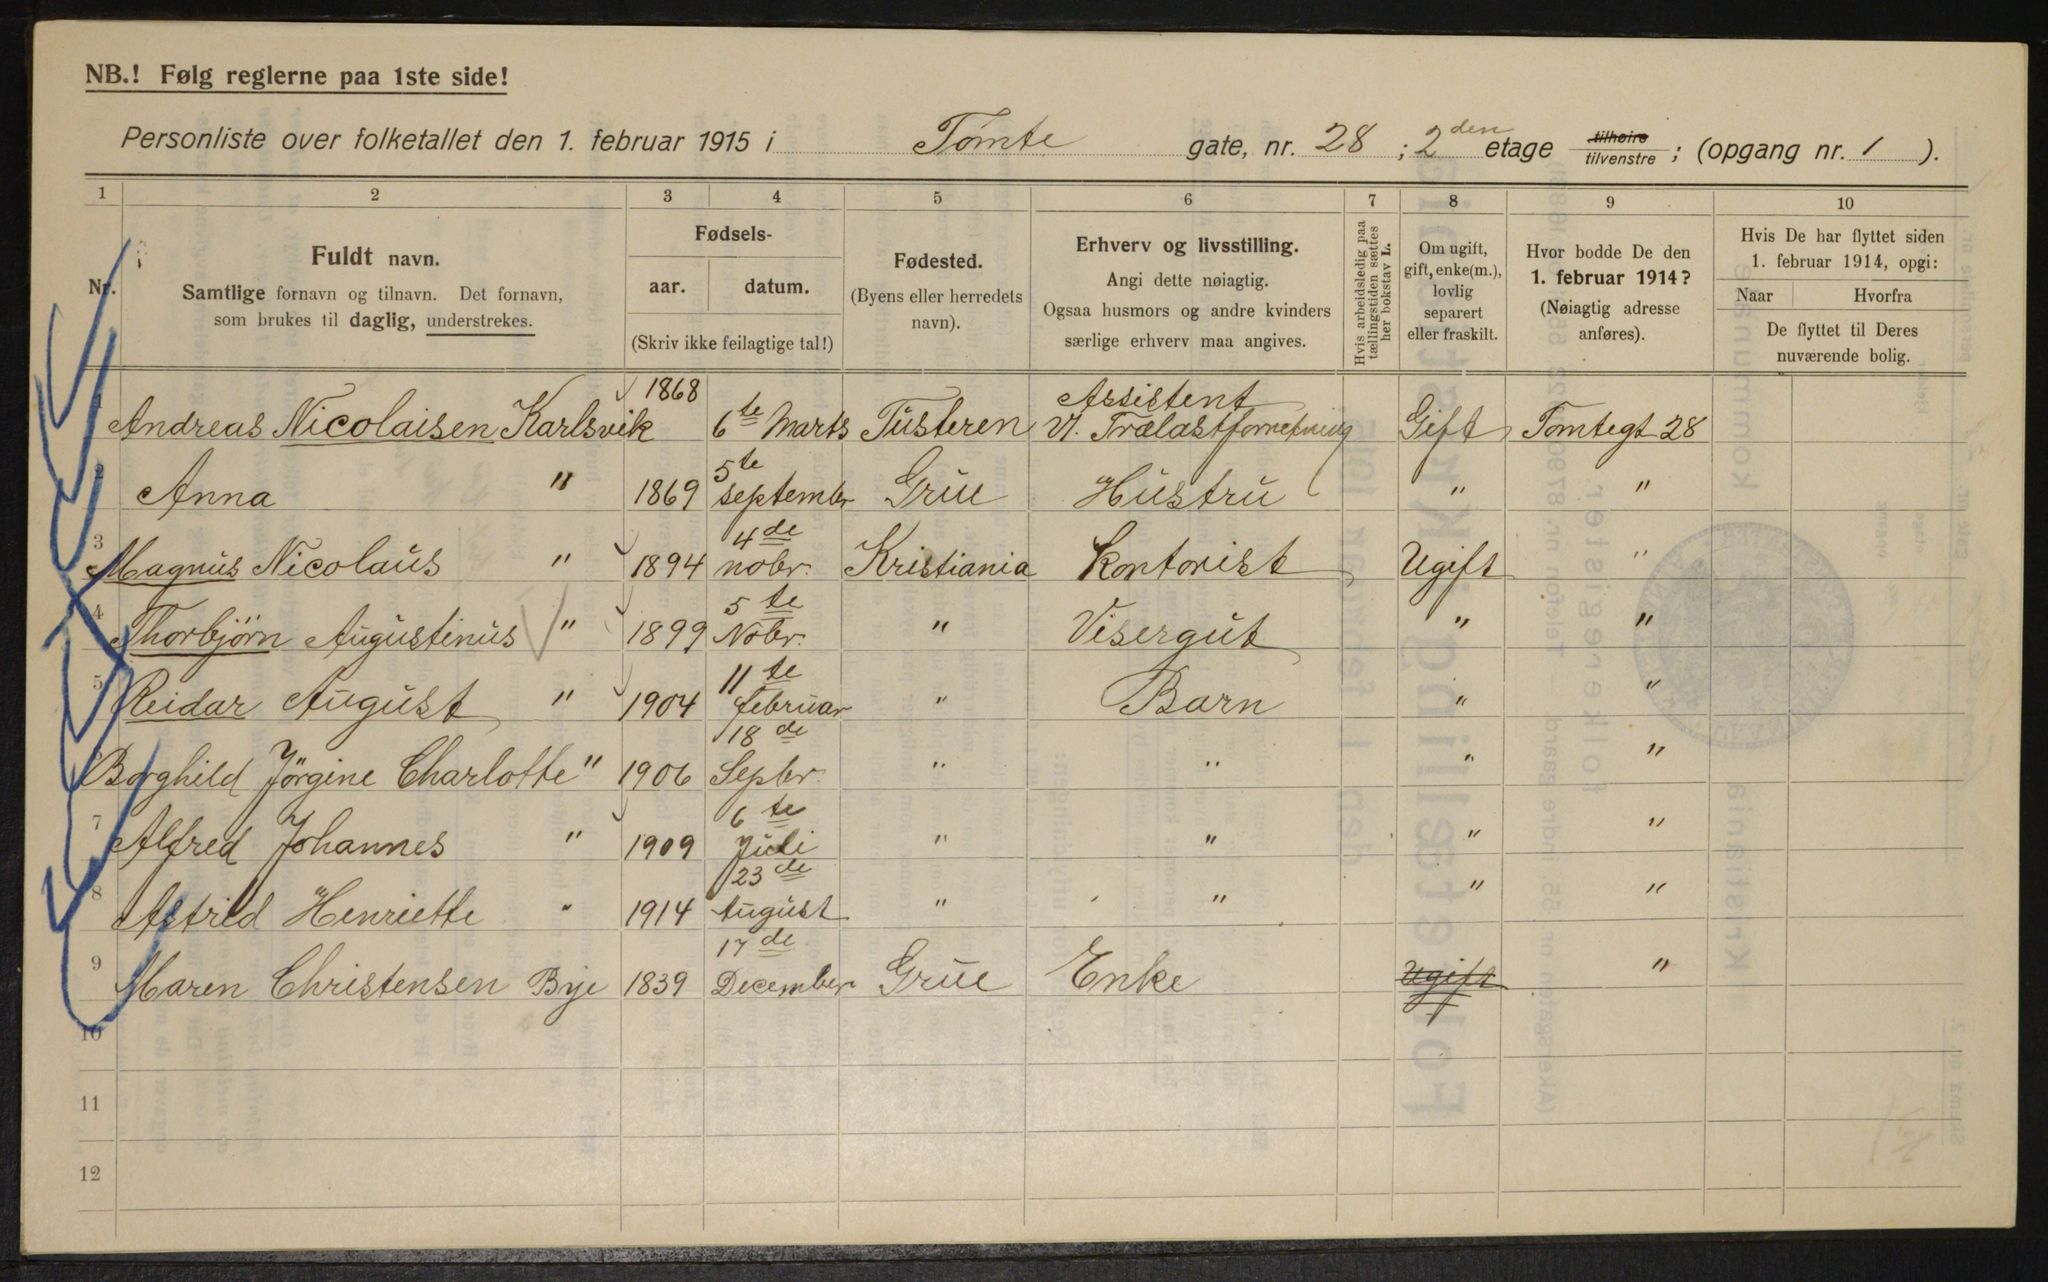 NB.! Følg reglerne paa 1ste side!
Personliste over folketallet den 1. februar 1915 i Tømte gate, nr. 28 ; 2den etage tilhøire tilvenstre ; (opgang nr. 1 ).
1 2 3 4 5 6 7 8 9 10
Nr.
Fuldt navn.
Samtlige fornavn og tilnavn. Det fornavn,
som brukes til daglig, understrekes.
Fødsels-
aar. datum.
(Skriv ikke feilagtige tal!)
Fødested.
(Byens eller herredets
navn).
Erhverv og livsstilling.
Angi dette nøiagtig.
Ogsaa husmors og andre kvinders
særlige erhverv maa angives.
Hvis arbeidsledig paa
tællingstiden sættes
her bokstav L.
Om ugift,
gift, enke(m.),
lovlig
separert
eller fraskilt.
Hvor bodde De den
1. februar 1914?
(Nøiagtig adresse
anføres).
Hvis De har flyttet siden
1. februar 1914, opgi:
Naar Hvorfra
De flyttet til Deres
nuværende bolig.
1 Andreas Nicolaisen Karlsvik 1868 6te Marts Tusteren Assistent v. Trælastforretning Gift Tomtegt 28
2 Anna " 1869 5te september Grue Hustru " "
3 Magnus Nicolaus " 1894 4de nobr. Kristiania Kontorist Ugift "
4 Thorbjörn Augustinus " 1899 5te Nobr. " Visergut " "
5 Reidar August " 1904 11te februar " Barn " "
6 Borghild Jörgine Charlotte " 1906 18de Sepbr. " " " "
7 Alfred Johannes " 1909 6te Juli " " " "
8 Astrid Henriette " 1914 23de August " " " "
9 Maren Christensen Bye 1839 17de December Grue Enke Ugift "
10
11
12